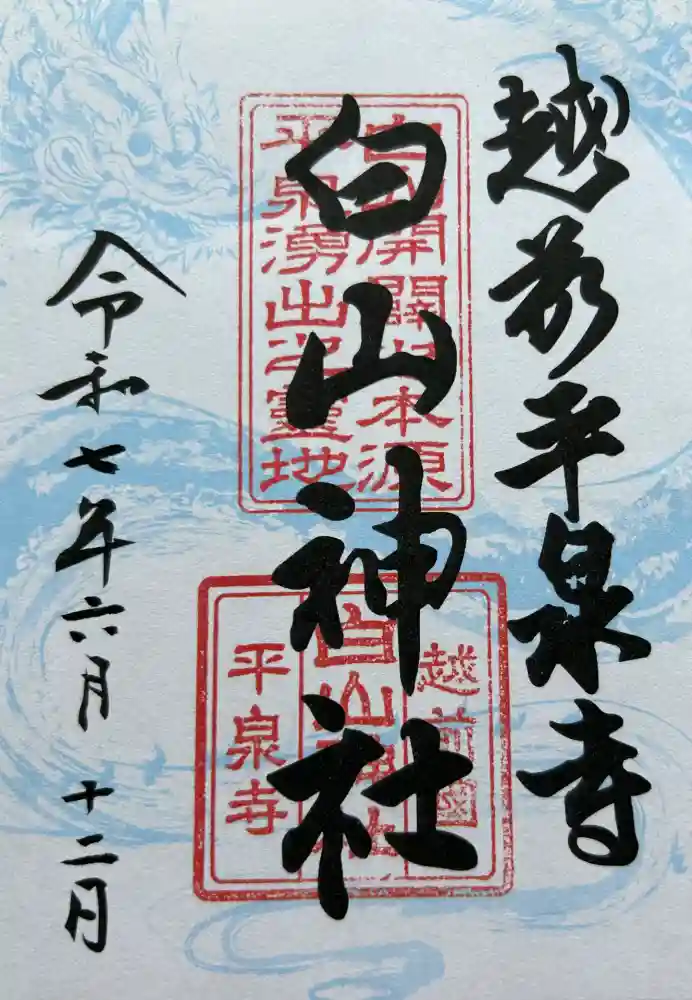 越前平泉寺
白山神社
白山開闢之本源
平泉湧出之靈地
越前國
白山神社
平泉寺
令和七年六月十二日